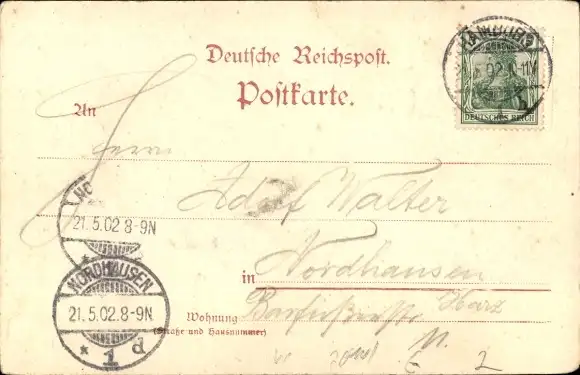 Deutsche Reichspost.
Postkarte.
HAMBURG
DEUTSCHES REICH
An
Herrn
Adolf Walter
21.5.02 8-9N
in Nordhausen
Harz
NORDHAUSEN
21.5.02.8-9N
* 1 d
Wohnung Barfüßerstraße
(Straße und Hausnummer)